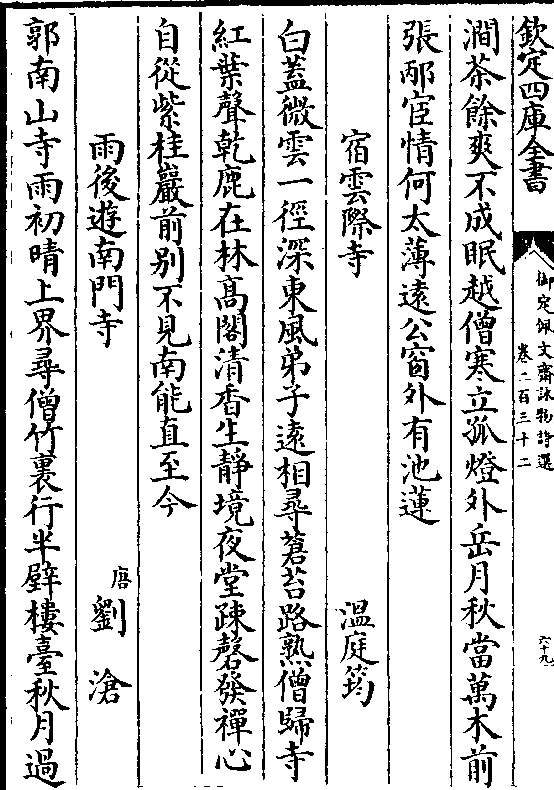 欽定四庫全書
御定佩文齋詠物詩選
卷二百三十二
六十九
澗茶餘爽不成眠越僧寒立孤燈外岳月秋當萬木前
張邴宦情何太薄逺公窗外有池蓮
宿雲際寺 溫庭筠
白蓋微雲一徑深東風弟子逺相尋蒼苔路熟僧歸寺
紅葉聲乾鹿在林髙閣清香生靜境夜堂疎磬發禪心
自從紫桂巖前别不見南能直至今
雨後遊南門寺 唐劉滄
郭南山寺雨初晴上界尋僧竹裏行半壁樓臺秋月過